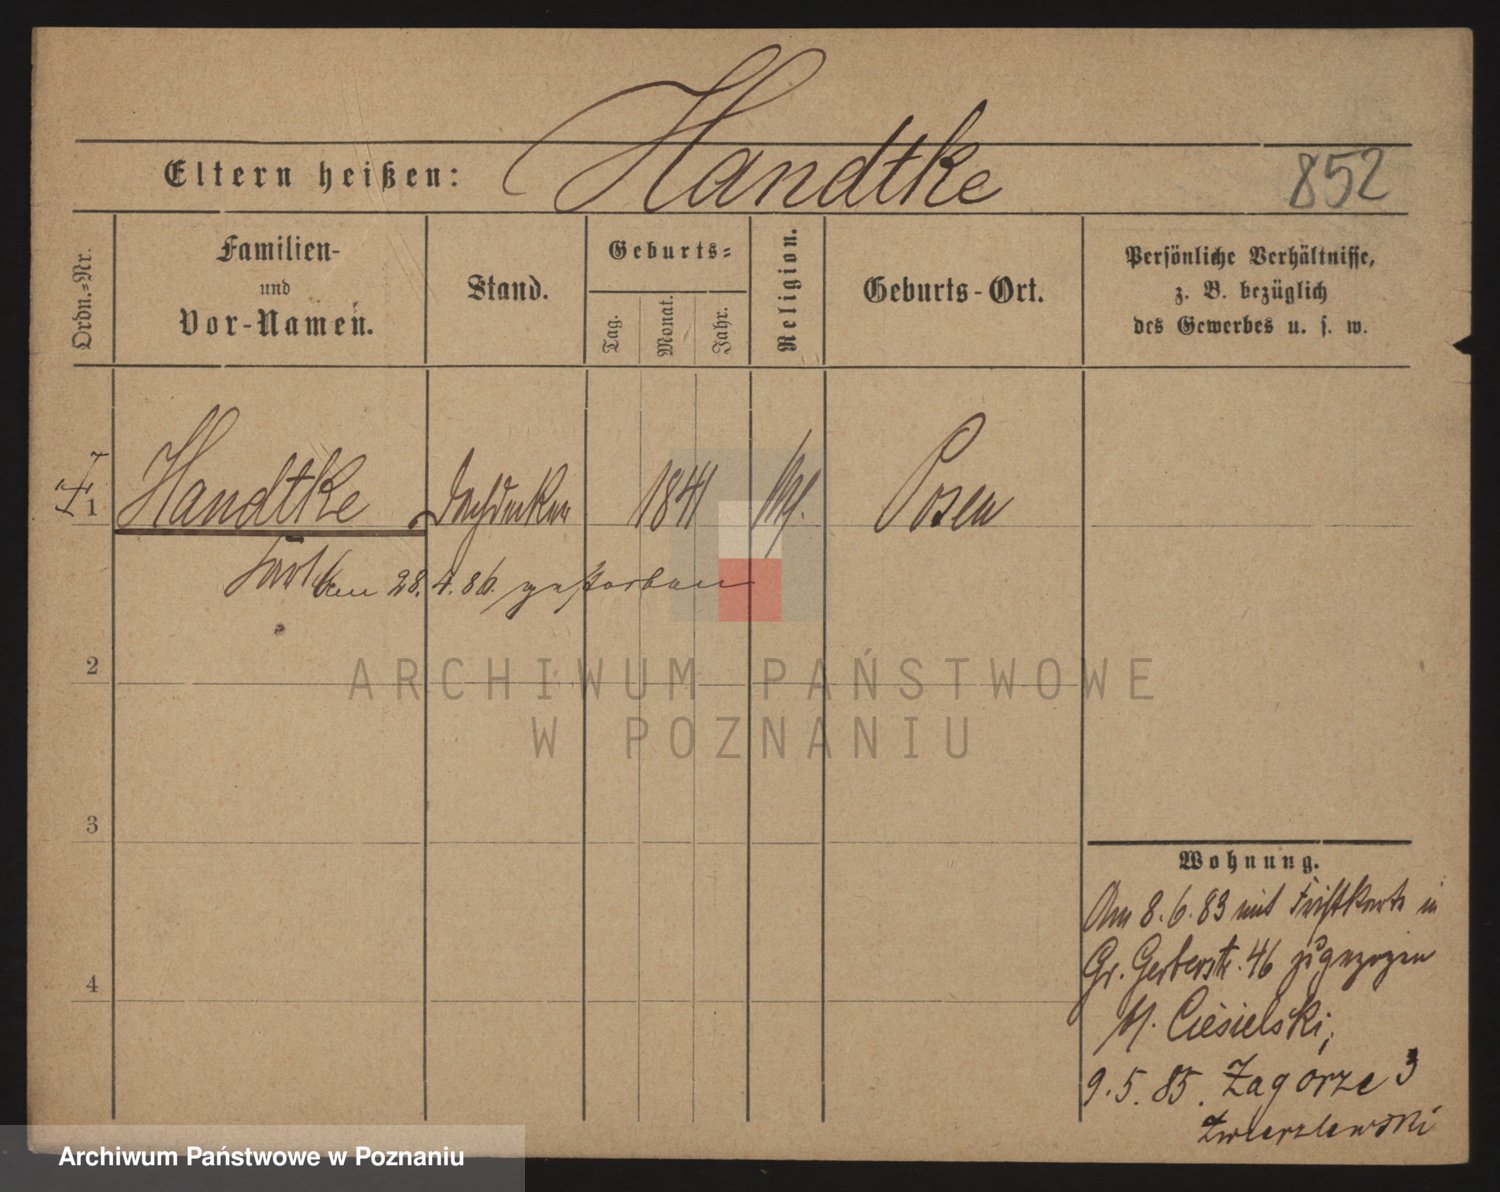 Handtke
Eltern heißen:
852
Ordn.=Nr.
Familien-
und
Vor-Namen.
Stand.
Geburts=
Tag.
Monat.
Jahr.
Religion.
Geburts-Ort.
Persönliche Verhältnisse,
z. B. bezüglich
des Gewerbes u. s. w.
1 Handtke Dachdecker 1841 Posen
den 28.4.86. gestorben
2
ARCHIWUM PAŃSTWOWE
W POZNANIU
3
Wohnung.
Am 8.6.83 mit in
Gr. Gerberstr. 46 zugezogen
Ciesielski,
4
9.5.85. Zagorze 3
Archiwum Państwowe w Poznaniu